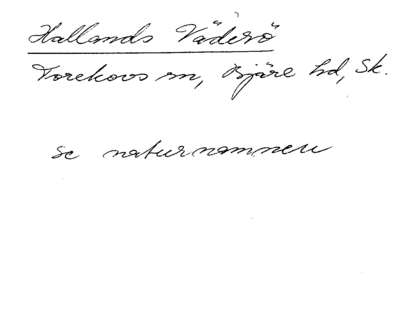 Hallands Väderö
Torekovs sn, Bjäre hd, Sk.
se naturnamnen